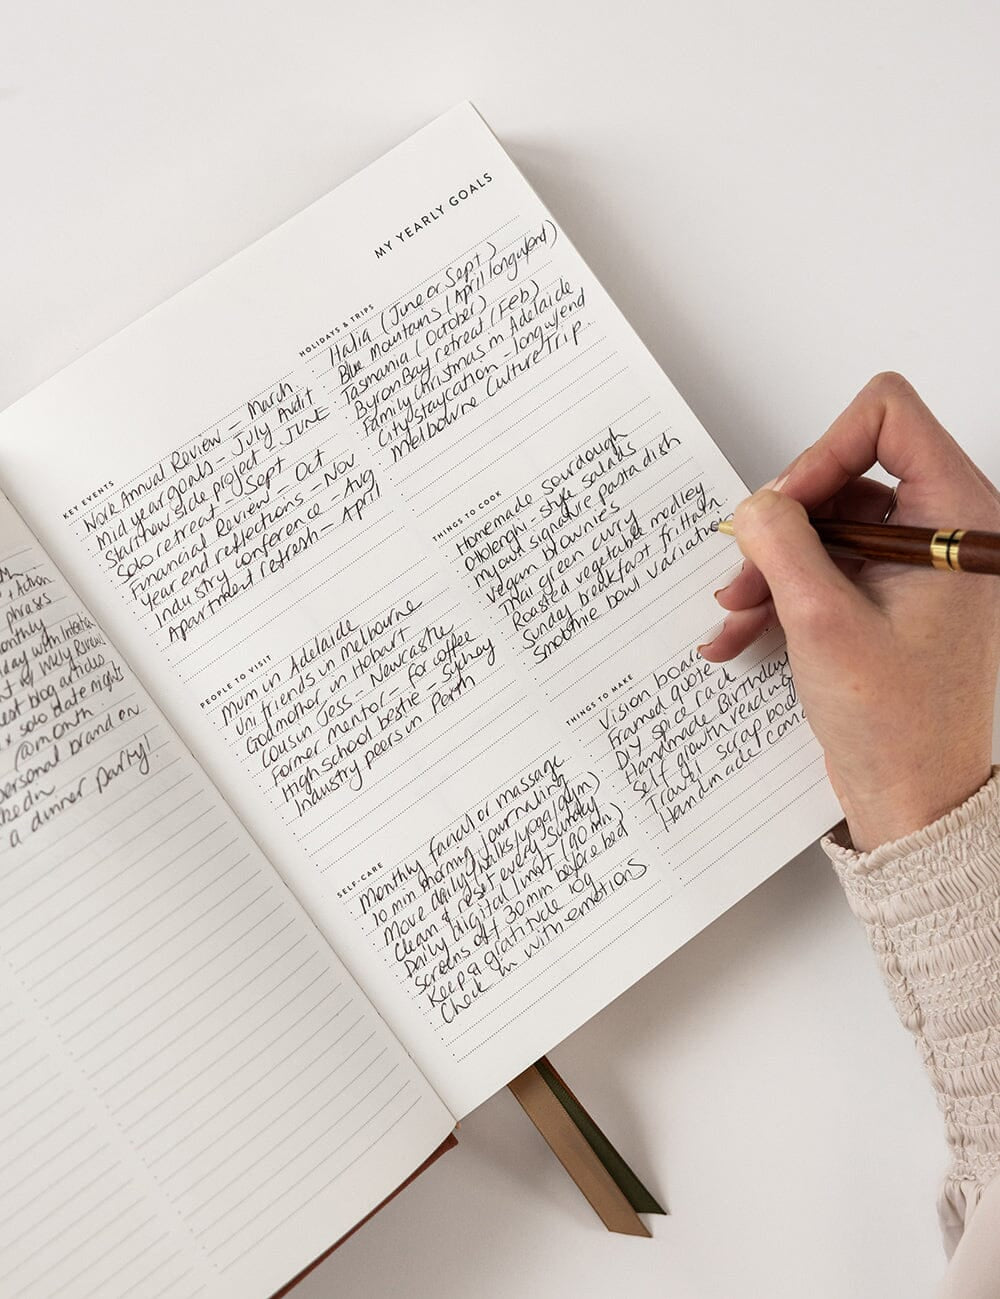 MY YEARLY GOALS
KEY EVENTS
Work Annual Review - March
Mid year goals - July Audit
Start new side project - JUNE
Solo retreat - Sept
Financial Review - Oct
Year end reflections - Nov
Industry conference - Aug
Apartment refresh - April
HOLIDAYS & TRIPS
Italia (June or Sept)
Blue Mountains (April long w/end)
Tasmania (October)
Byron Bay retreat (Feb)
Family Christmas in Adelaide
City staycation - long w/end
Melbourne Culture Trip
PEOPLE TO VISIT
Mum in Adelaide
Uni friends in Melbourne
Godmother in Hobart
Cousin Jess - Newcastle
Former mentor - for coffee
High school bestie - Sydney
Industry peers in Perth
THINGS TO COOK
Homemade sourdough
Ottolenghi-style salads
My own signature pasta dish
Vegan brownies
Thai green curry
Roasted vegetable medley
Sunday breakfast frittata
Smoothie bowl variation
SELF-CARE
Monthly facial or massage
10 min morning journaling
Move daily (walks/yoga/gym)
Clean & reset every Sunday
Daily digital limit (90 min)
Screens off 30 min before bed
Keep a gratitude log
Check in with emotions
THINGS TO MAKE
Vision board
Framed quote
DIY spice rack
Handmade Birthday
Self growth reading
Travel scrap book
Handmade
+ Action
phrases
monthly
blog articles
solo date nights
@ month
personal brand on
a dinner party!